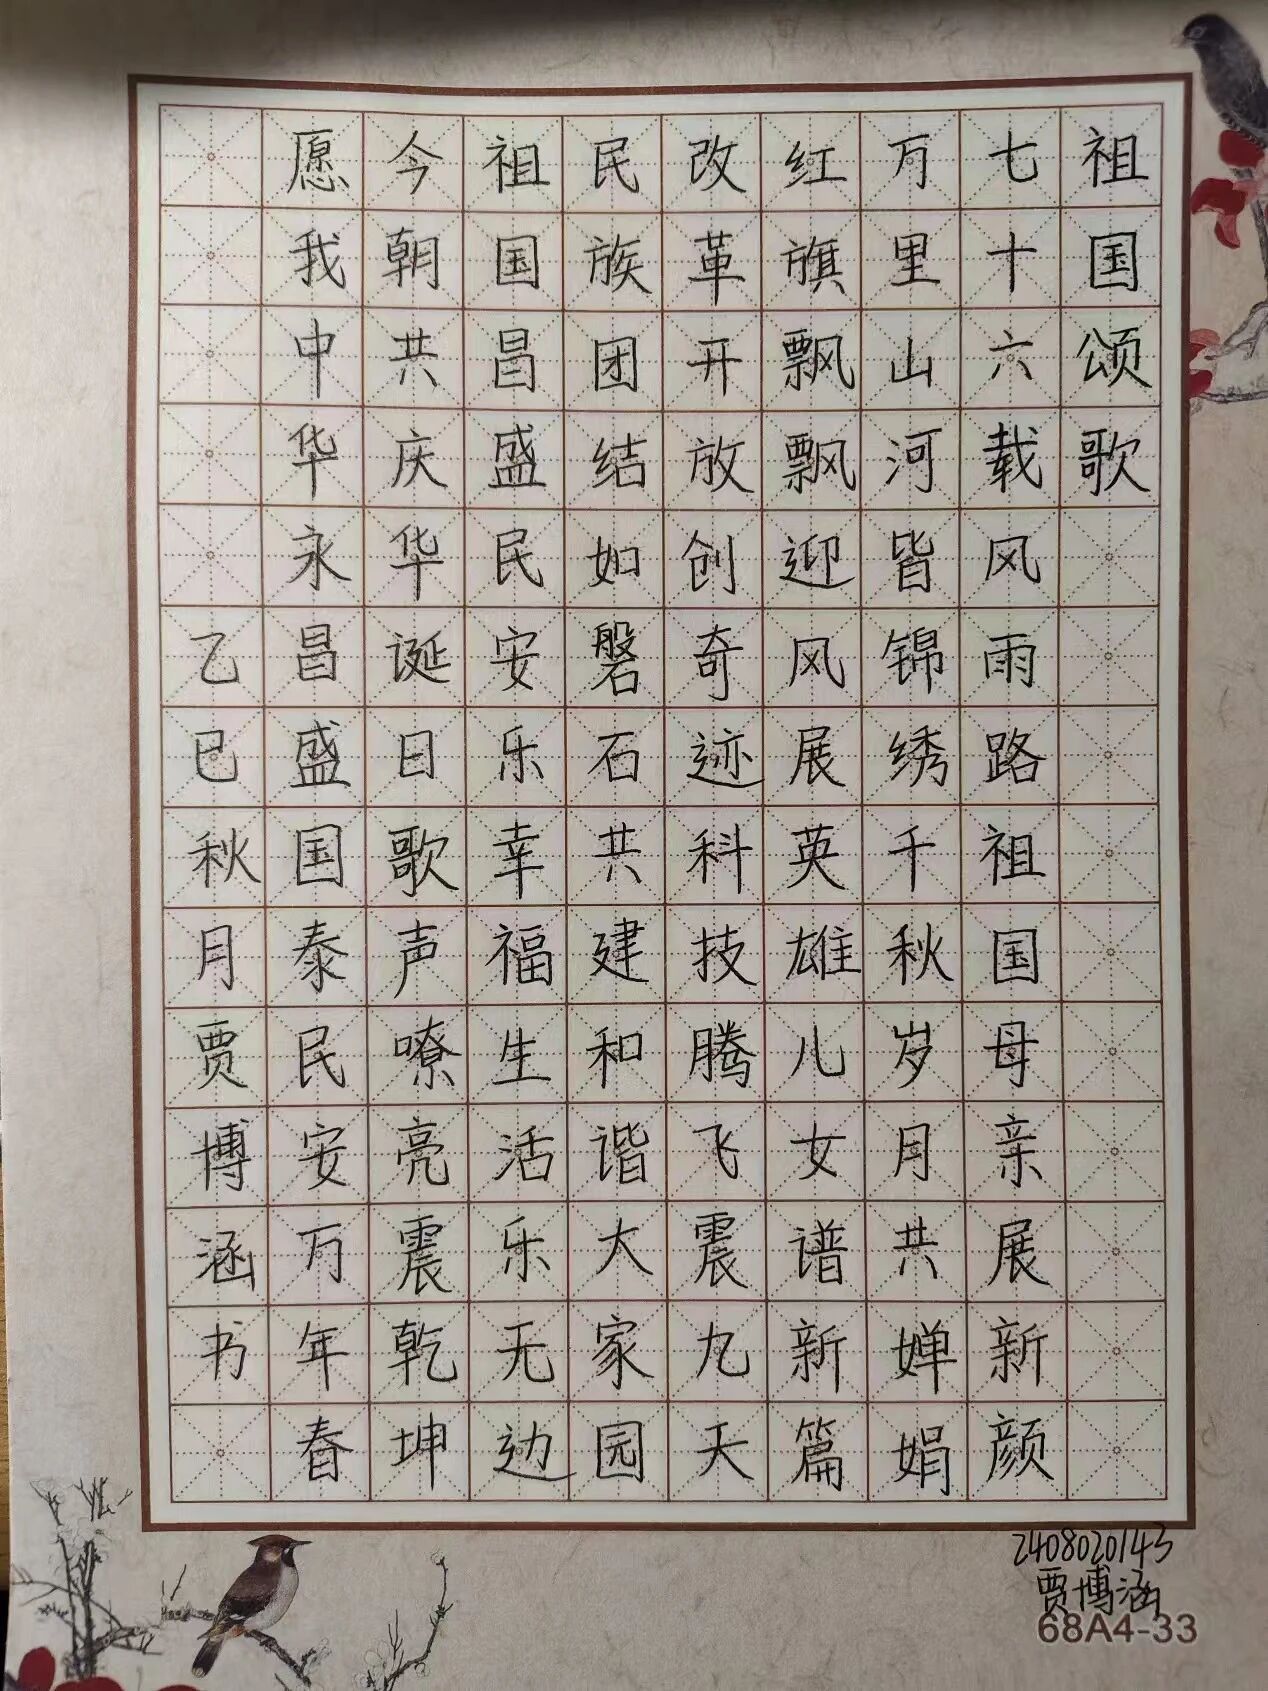 祖国颂歌
七十六载风雨路祖国母亲展新颜
万里山河皆锦绣千秋岁月共婵娟
红旗飘飘迎风展英雄儿女谱新篇
改革开放创奇迹科技腾飞震九天
民族团结如磐石共建和谐大家园
祖国昌盛民安乐幸福生活乐无边
今朝共庆华诞日歌声嘹亮震乾坤
愿我中华永昌盛国泰民安万年春
乙巳秋月贾博涵书
2408020143
贾博涵
68A4-33